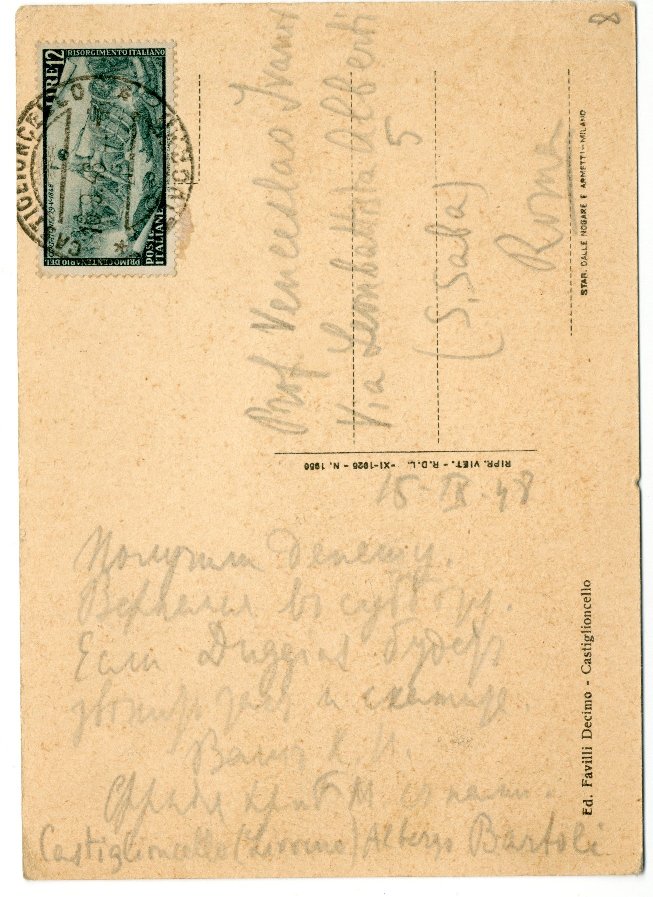 8
LIRE 12
RISORGIMENTO ITALIANO
POSTE ITALIANE
PRIMO CENTENARIO DEL
CASTIGLIONCELLO
Prof Venceslao Ivanov
Via Leon Battista Alberti
5
(S. Saba)
Roma
STAB. DALLE NOGARE E ARMETTI - MILANO
RIPR. VIET. - R.D.L. -XI-1925 - N. 1950
15-IX-48
Получили депешу.
Вернемся в субботу.
Если Дидді будетъ
и скажите
Ваша
нами.
Castiglioncello (Livorno) Albergo Bartoli
Ed. Favilli Decimo - Castiglioncello